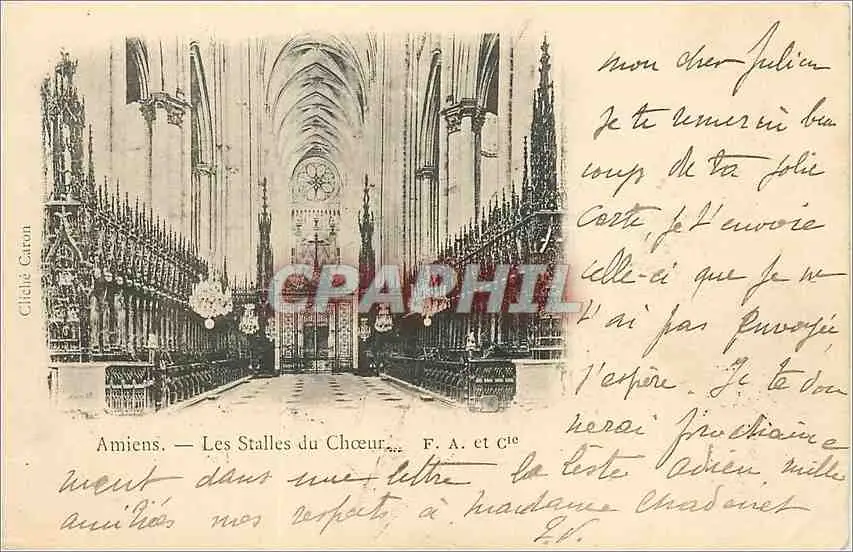 mon cher Julien
Je te remercie beau
coup de ta jolie
Carte, Je t'envoie
celle-ci que Je ne
t'ai pas Envoyée
J'espère. Je te don
nerai prochaine
Cliché Caron
CPARPHIL
Amiens. — Les Stalles du Chœur... F. A. et Cie
ment dans une lettre la liste adieu mille
amitiés mes respects à Madame